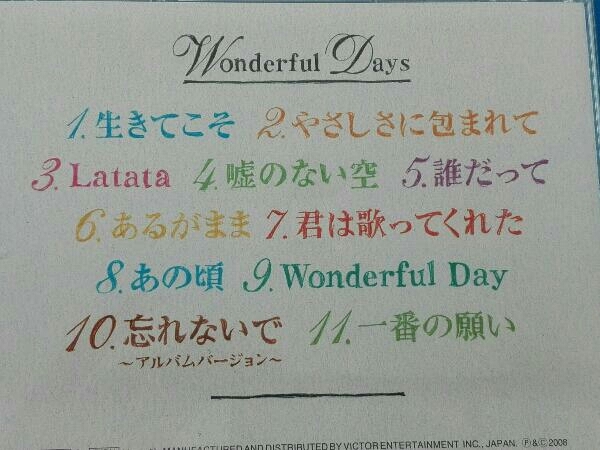 Wonderful Days
1.生きてこそ 2.やさしさに包まれて
3.Latata 4.嘘のない空 5.誰だって
6.あるがまま 7.君は歌ってくれた
8.あの頃 9.Wonderful Day
10.忘れないで 11.一番の願い
～アルバムバージョン～
MANUFACTURED AND DISTRIBUTED BY VICTOR ENTERTAINMENT INC., JAPAN. Ⓟ&Ⓒ2008